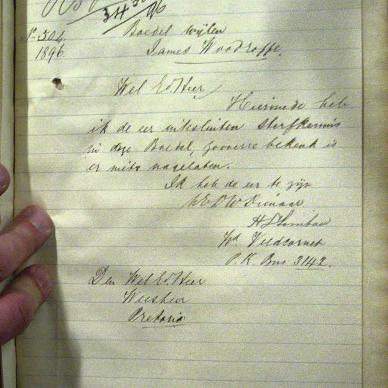 34
No 304
1896
Boedel wijlen
James Woodroffe.
Wel Ed Heer
Hiermede heb
ik de eer inte sluiten sterfkennis
in deze Boedel, zooverre bekend is
er niets nagelaten.
Ik heb de eer te zijn
UEdW Dienaar
Wd Veldcornet
P.K. Bus 3142.
Den Wel Ed Heer
Weesheer
Pretoria